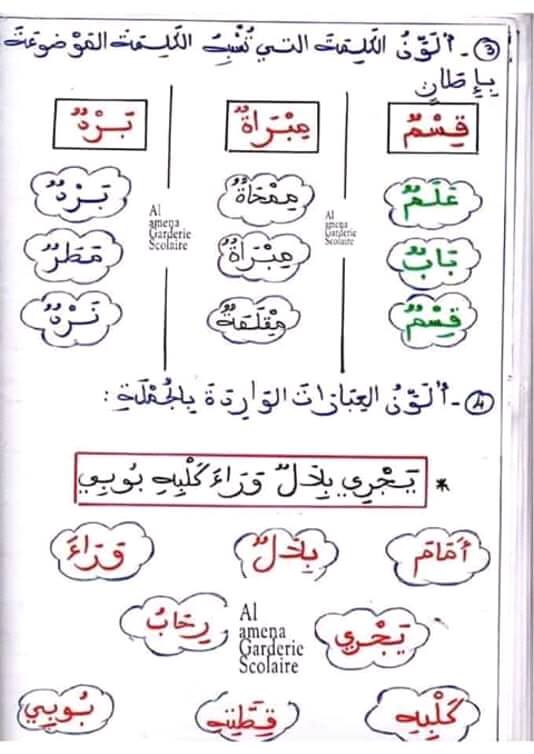 ③ - أُلَوِّنُ الكَلِمَةَ التِي تُشْبِهُ الكَلِمَةَ المَوْضُوعَةَ
بِإِطَارٍ
قِسْمٌ مِبْرَاةٌ بَرْدٌ
عَلَمٌ مِمْحَاةٌ بَرْدٌ
Al amena Garderie Scolaire
Al amena Garderie Scolaire
بَابٌ مِبْرَاةٌ مَطَرٌ
قِسْمٌ مِقْلَمَةٌ نَرْدٌ
④ - أُلَوِّنُ العِبَارَاتَ الوَارِدَةَ بِالجُمْلَةِ :
* يَجْرِي بِلَالٌ وَرَاءَ كَلْبِهِ بُوبِي
أَمَامَ بِلَالٌ وَرَاءَ
يَجْرِي رِحَابُ
Al
amena
Garderie
Scolaire
كَلْبِهِ قِطَّتِهِ بُوبِي